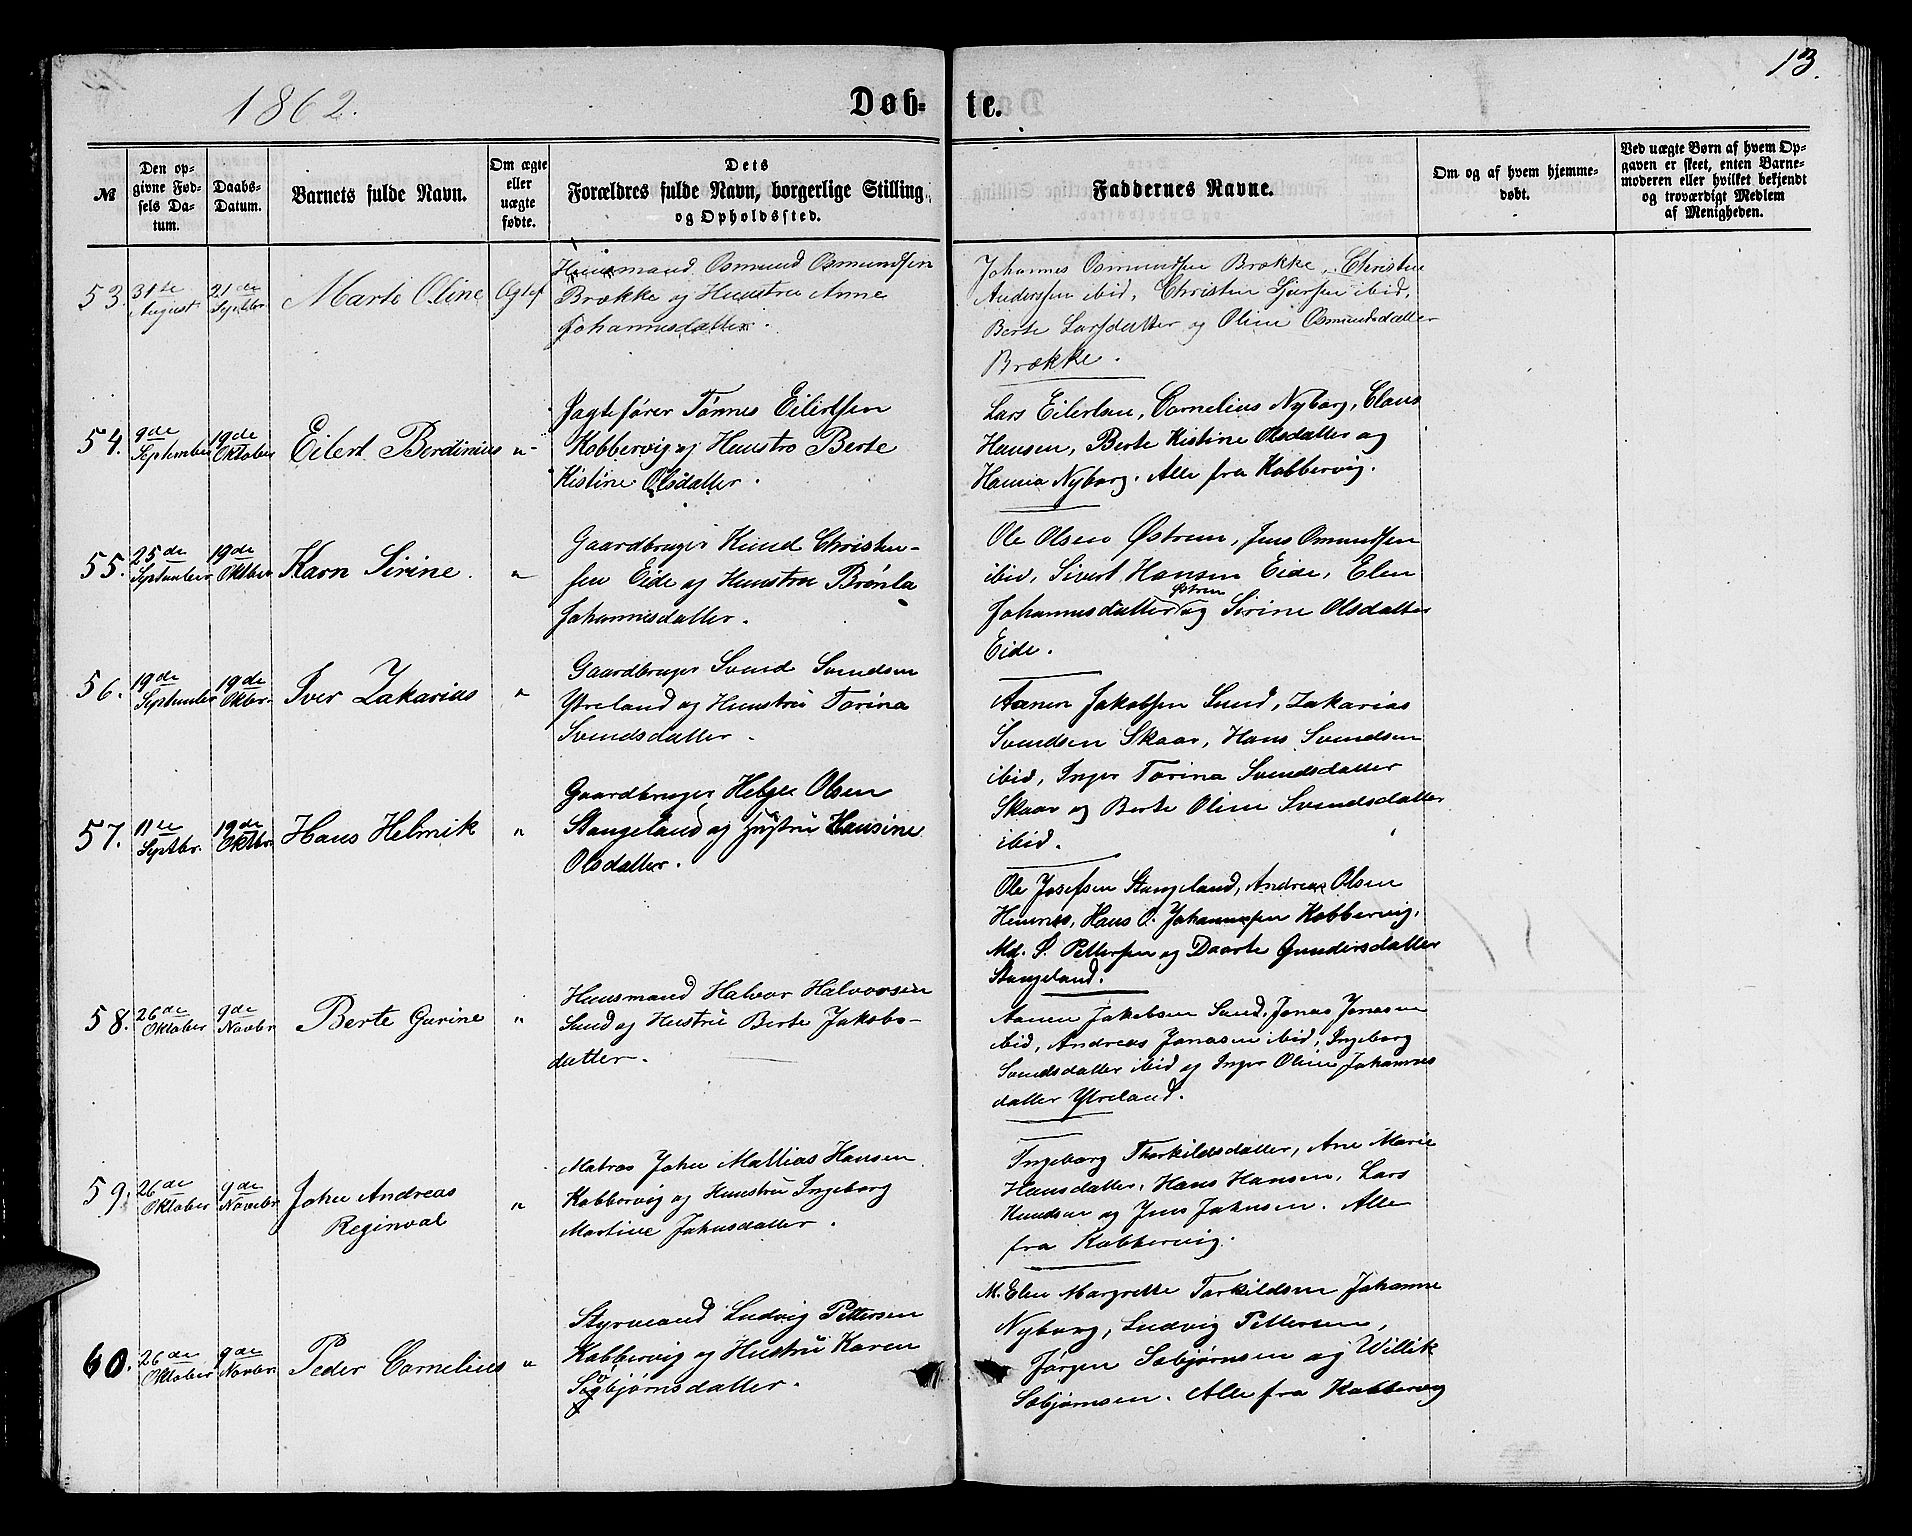 13.
1862.
Døb-
te.
№
Den op-
givne Fød-
sels Da-
tum.
Daabs-
Datum.
Barnets fulde Navn.
Om ægte
eller
uægte
fødte.
Dets
Forældres fulde Navn, borgerlige Stilling
og Opholdssted.
Faddernes Navne.
Om og af hvem hjemme-
døbt.
Ved uægte Børn af hvem Op-
gaven er skeet, enten Barne-
moderen eller hvilket bekjendt
og troværdigt Medlem
af Menigheden.
53.
31te
August
21de
Septbr
Marte Oline
Ægtef
Huusmand Osmund Osmundsen
Brække og Huustru Anne
Johannesdatter.
Johannes Osmundsen Brække, Christen
Anderssen ibid, Christen ibid,
Berte Larsdatter og Oline Osmundsdatter
Brække.
54.
9de
September
19de
Oktober
Eilert Berdinius
"
Jagtefører Tønnes Eilertsen
Kobbervig og Huustro Berte
Kistine Olsdatter.
Lars Eilertsen, Cornelius Nyborg, Claus
Hansen, Berte Kistine Olsdatter og
Hansia Nyborg. Alle fra Kobbervig.
55.
25de
September
19de
Oktber
Karn Sirine.
"
Gaardbruger Knud Christen-
sen Eide og Huustru Brønla
Johannesdatter.
Ole Olsen Østrem, Jens Osmundsen
ibid, Sivert Hansen Eide, Elen
Østrem
Johannesdatter og Sirine Olsdatter
Eide.
56.
19de
September
19de
Oktbr.
Iver Zakarias
"
Gaardbruger Svend Svendsen
Ytreland og Huustru Torina
Svendsdatter.
Aanen Jakobsen Sund, Zakarias
Svendsen Skaar, Hans Svendsen
ibid, Inger Torina Svendsdatter
Skaar og Berte Oline Svendsdatter
ibid.
57.
11te
Septbr.
19de
Oktbr.
Hans Helmik
"
Gaardbruger Helge Olsen
Stangeland og Hustru Hansine
Olsdatter.
Ole Josefsen Stangeland, Andreas Olsen
Hemnes, Hans O. Johannesen Kobbervig,
Md. S. Pettersen og Daarte Gundersdatter
Stangeland.
58.
26de
Oktober
9de
Novbr
Berte Gurine
"
Huusmand Halvor Halvorsen
Sund og Hustru Berte Jakobs-
datter.
Aanen Jakobsen Sund, Jonas Jonasen
ibid, Andreas Jonasen ibid, Ingeborg
Svendsdatter ibid og Inger Oline Johannes
datter Ytreland.
59.
26de
Oktober
9de
Novbr
John Andreas
Reginval
"
Matros John Mattias Hansen
Kobbervig og Huustru Ingeborg
Martine Johnsdatter.
Ingeborg Thorkildsdatter, Ane Marie
Hansdatter, Hans Hansen, Lars
Knudsen og Jens Johnsen. Alle
fra Kobbervig.
60.
26de
Oktober
9de
Novbr.
Peder Cornelius
"
Styrmand Ludvig Pettersen
Kobbervig og Hustru Karen
Søbjørnsdatter.
M. Elen Margrette Torkildsen Johanne
Nyborg, Ludvig Pettersen,
Jørgen Søbjørnsen og Willik
Søbjørnsen. Alle fra Kobbervig